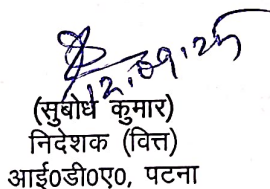 12.09.25
(सुबोध कुमार)
निदेशक (वित्त)
आई0डी0ए0, पटना